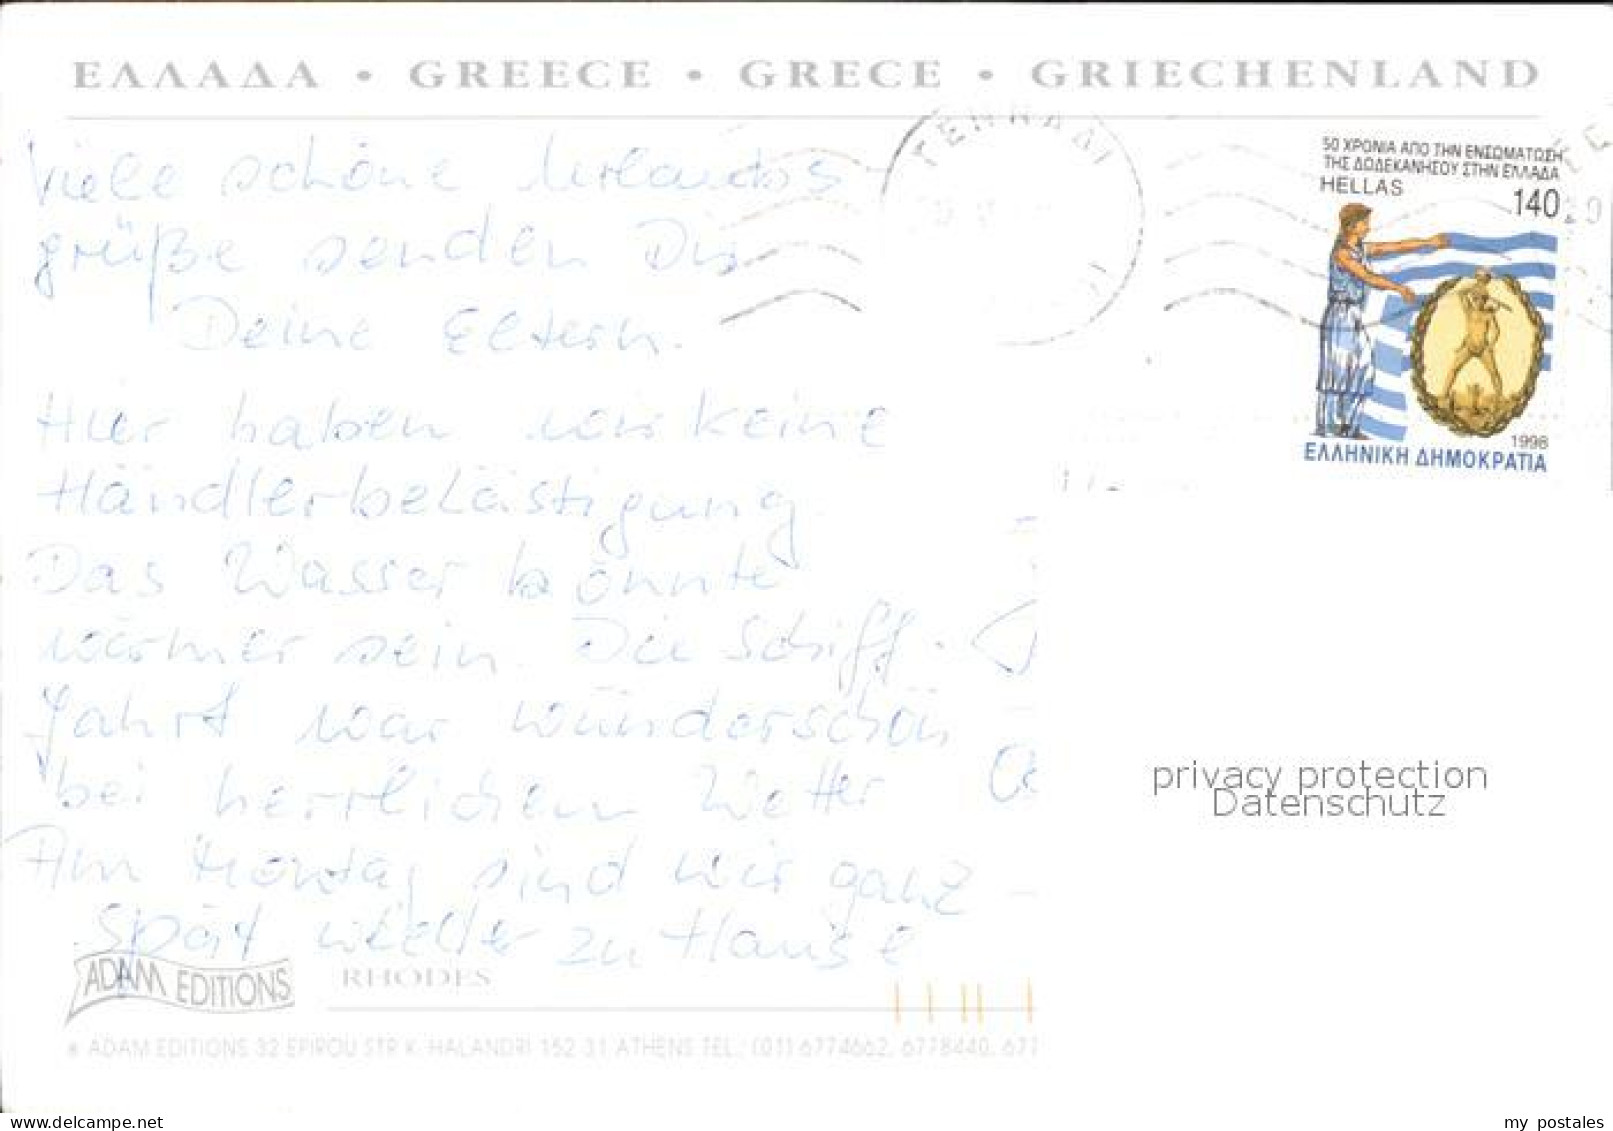 ΕΛΛΑΔΑ • GREECE • GRECE • GRIECHENLAND
Viele schöne Urlaubs
grüße senden Dir
Deine Eltern.
Hier haben wir keine
Händlerbelästigung.
Das Wasser könnte
wärmer sein. Die Schiff-
fahrt war wunderschön
bei herrlichem Wetter
Am Montag sind wir ganz
spät wieder zu Hause
ΓΕΝΝΑΔΙ
50 ΧΡΟΝΙΑ ΑΠΟ ΤΗΝ ΕΝΣΩΜΑΤΩΣΗ
ΤΗΣ ΔΩΔΕΚΑΝΗΣΟΥ ΣΤΗΝ ΕΛΛΑΔΑ
HELLAS 140
1998
ΕΛΛΗΝΙΚΗ ΔΗΜΟΚΡΑΤΙΑ
privacy protection
Datenschutz
ADAM EDITIONS
RHODES
ADAM EDITIONS 32 EPIROU STR K. HALANDRI 152 31 ATHENS TEL.: (01) 6774662, 6778440, 677
www.delcampe.net
my postales